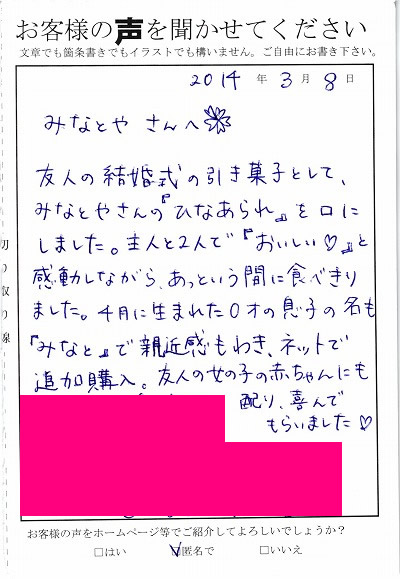 お客様の声を聞かせてください
文章でも箇条書きでもイラストでも構いません。ご自由にお書き下さい。
2014年3月8日
みなとや さんへ
友人の結婚式の引き菓子として、
みなとやさんの『ひなあられ』を口に
しました。主人と2人で『おいしい♡』と
感動しながら、あっという間に食べきり
ました。4月に生まれた0才の息子の名も
『みなと』で親近感もわき、ネットで
追加購入。友人の女の子の赤ちゃんにも
配り、喜んで
もらいました♡
切り取り線
お客様の声をホームページ等でご紹介してよろしいでしょうか？
□はい ☑匿名で □いいえ